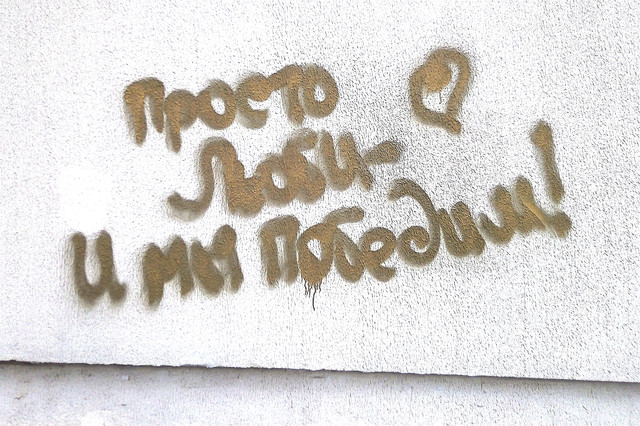 просто
Люби-
и мы победили!